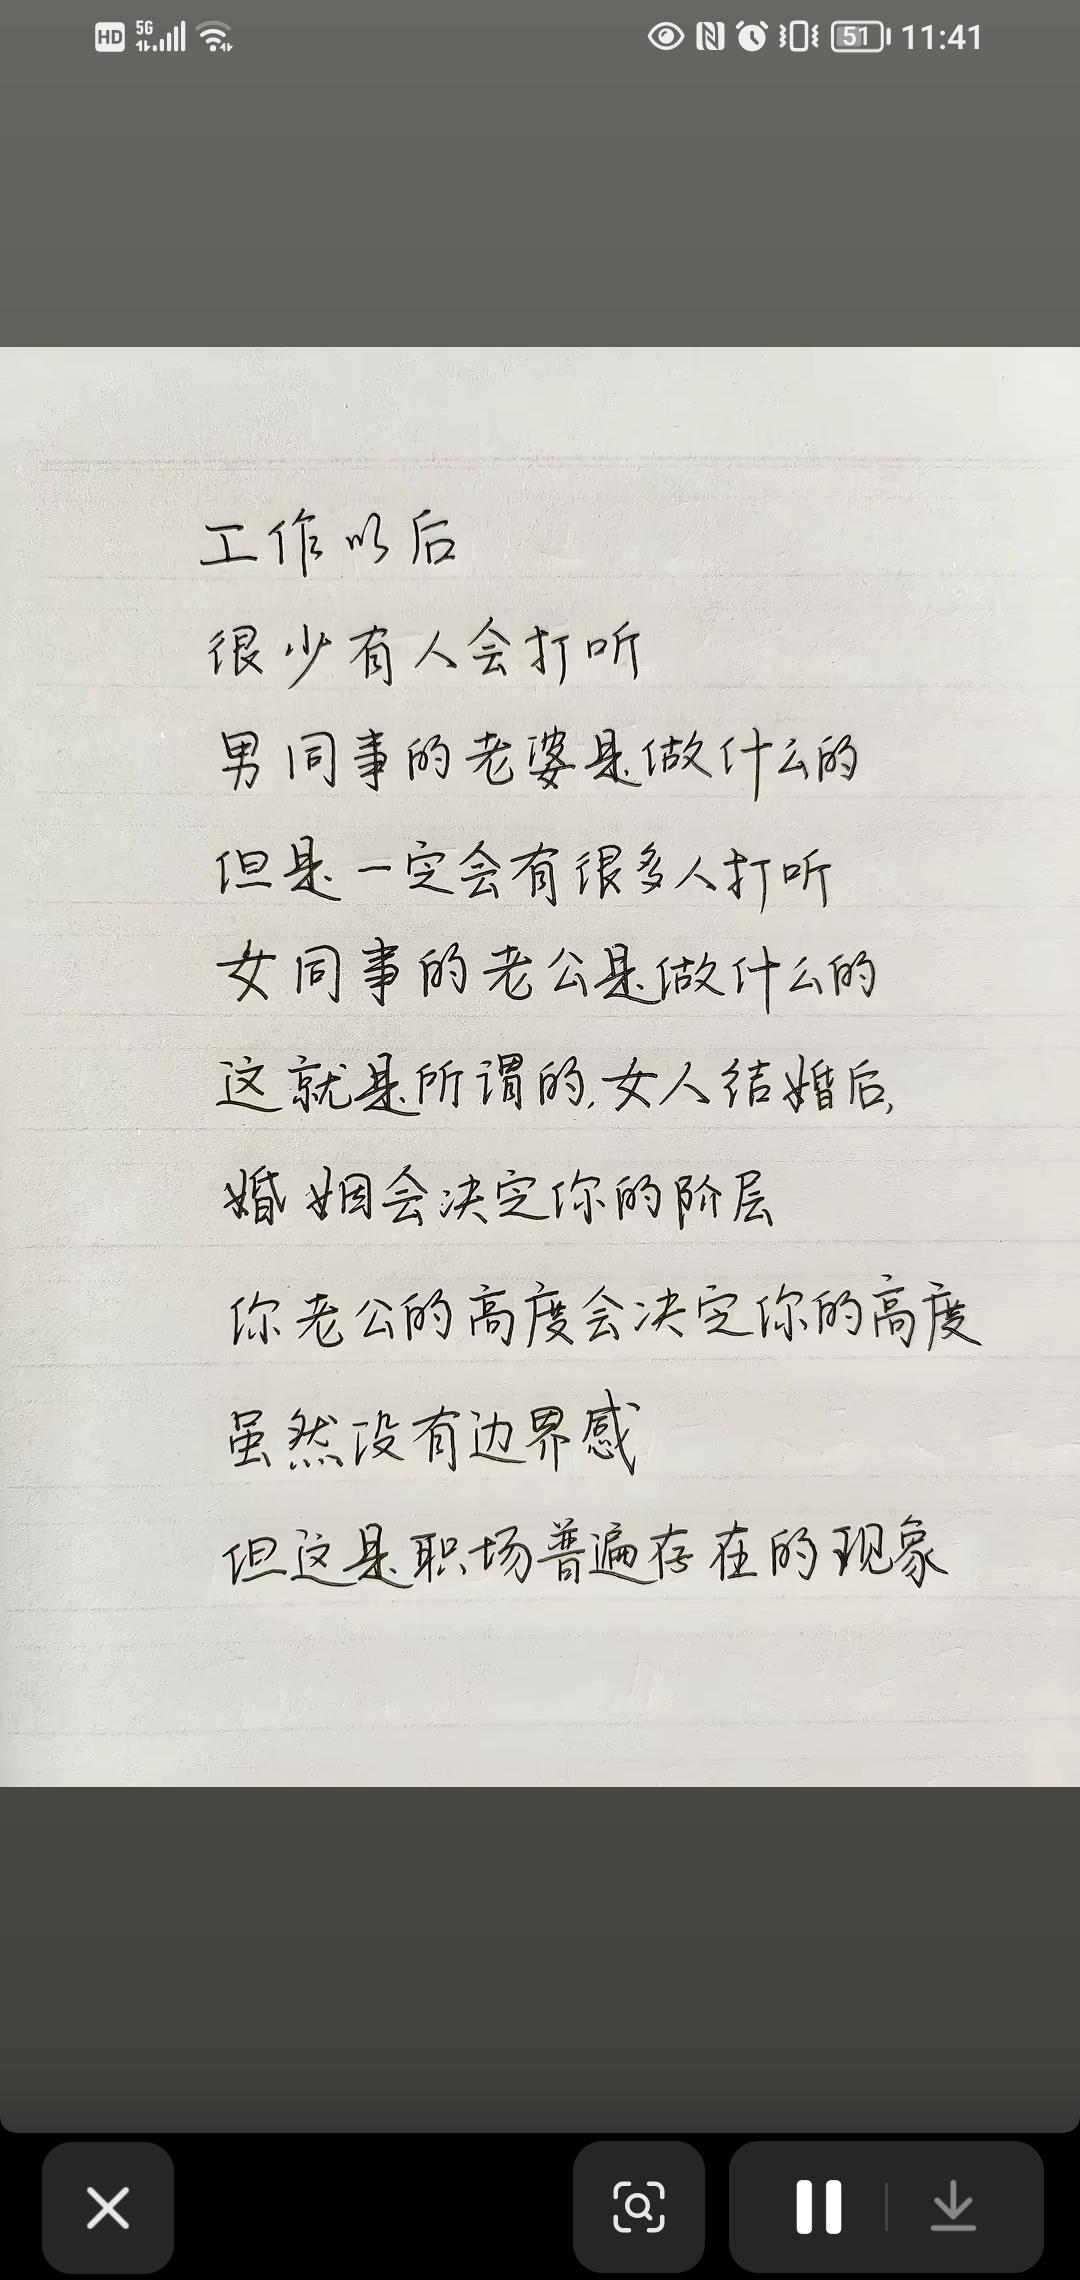 HD 5G 51 11:41
工作以后
很少有人会打听
男同事的老婆是做什么的
但是一定会有很多人打听
女同事的老公是做什么的
这就是所谓的,女人结婚后,
婚姻会决定你的阶层
你老公的高度会决定你的高度
虽然没有边界感
但这是职场普遍存在的现象